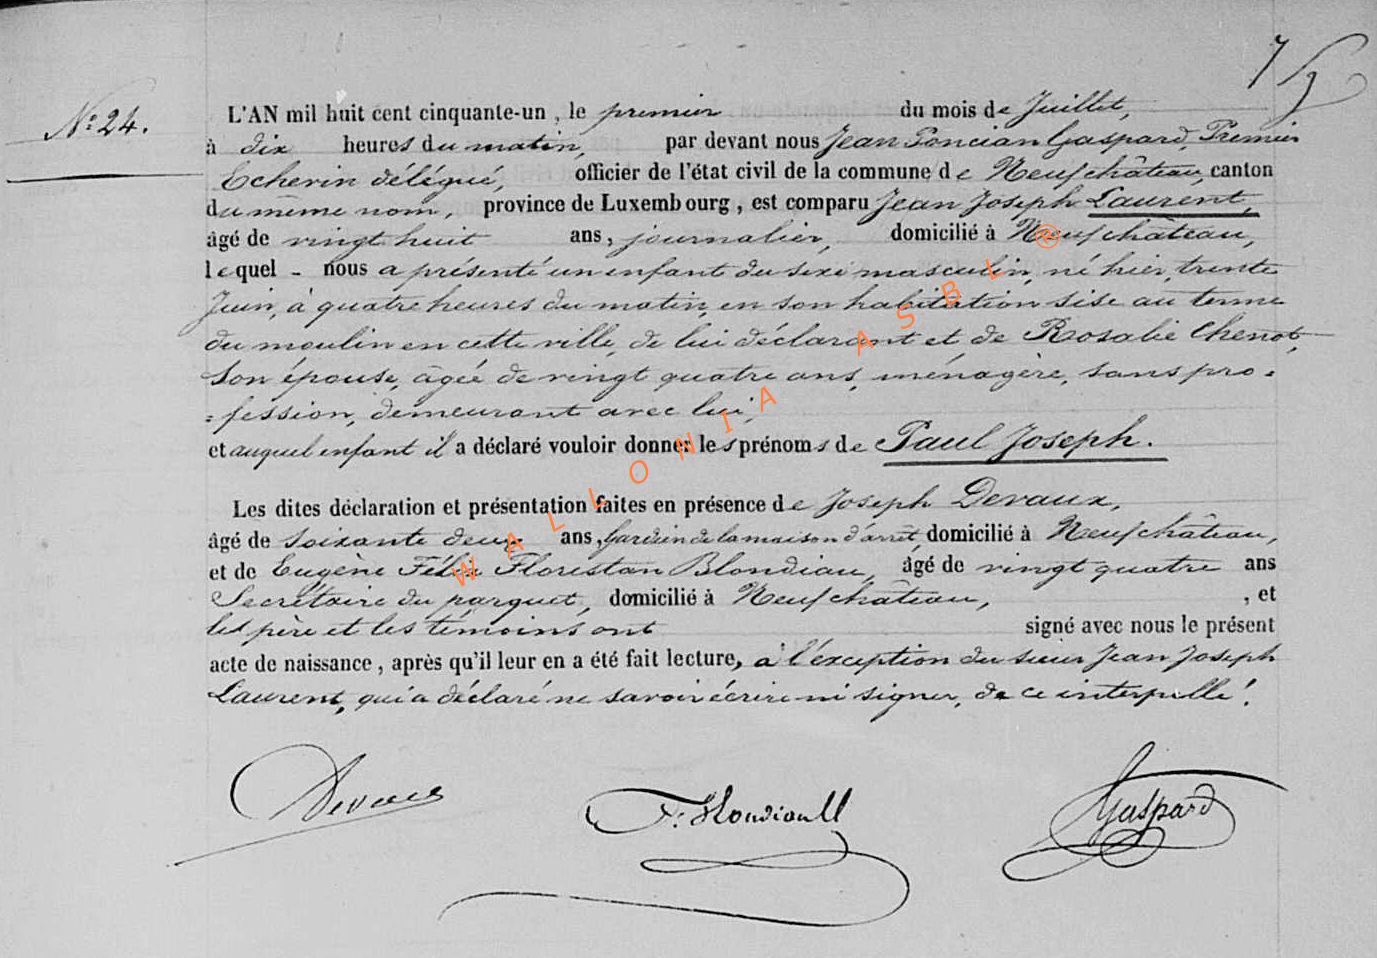 N.o 24.
L'AN mil huit cent cinquante-un, le premier du mois de Juillet,
à dix heures du matin, par devant nous Jean Poncian Gaspard, Premier
Echevin délégué, officier de l'état civil de la commune de Neufchâteau, canton
du même nom, province de Luxembourg, est comparu Jean Joseph Laurent,
âgé de vingt huit ans, journalier, domicilié à Neufchâteau,
lequel - nous a présenté un enfant du sexe masculin, né hier, trente
Juin, à quatre heures du matin, en son habitation sise au terme
du moulin en cette ville, de lui déclarant et de Rosalie Chenot,
son épouse, âgée de vingt quatre ans, ménagère, sans pro=
=fession, demeurant avec lui,
et auquel enfant il a déclaré vouloir donner les prénoms de Paul Joseph.
Les dites déclaration et présentation faites en présence de Joseph Devaux,
âgé de soixante deux ans, Gardien de la maison d'arrêt, domicilié à Neufchâteau,
et de Eugène Félix Florestan Blondiau, âgé de vingt quatre ans
Secrétaire du parquet, domicilié à Neufchâteau, , et
les père et les témoins ont signé avec nous le présent
acte de naissance, après qu'il leur en a été fait lecture, à l'exception du sieur Jean Joseph
Laurent, qui a déclaré ne savoir écrire ni signer, de ce interpellé!
Devaux F: Blondiau Gaspard
WALLONIA ASBL ®